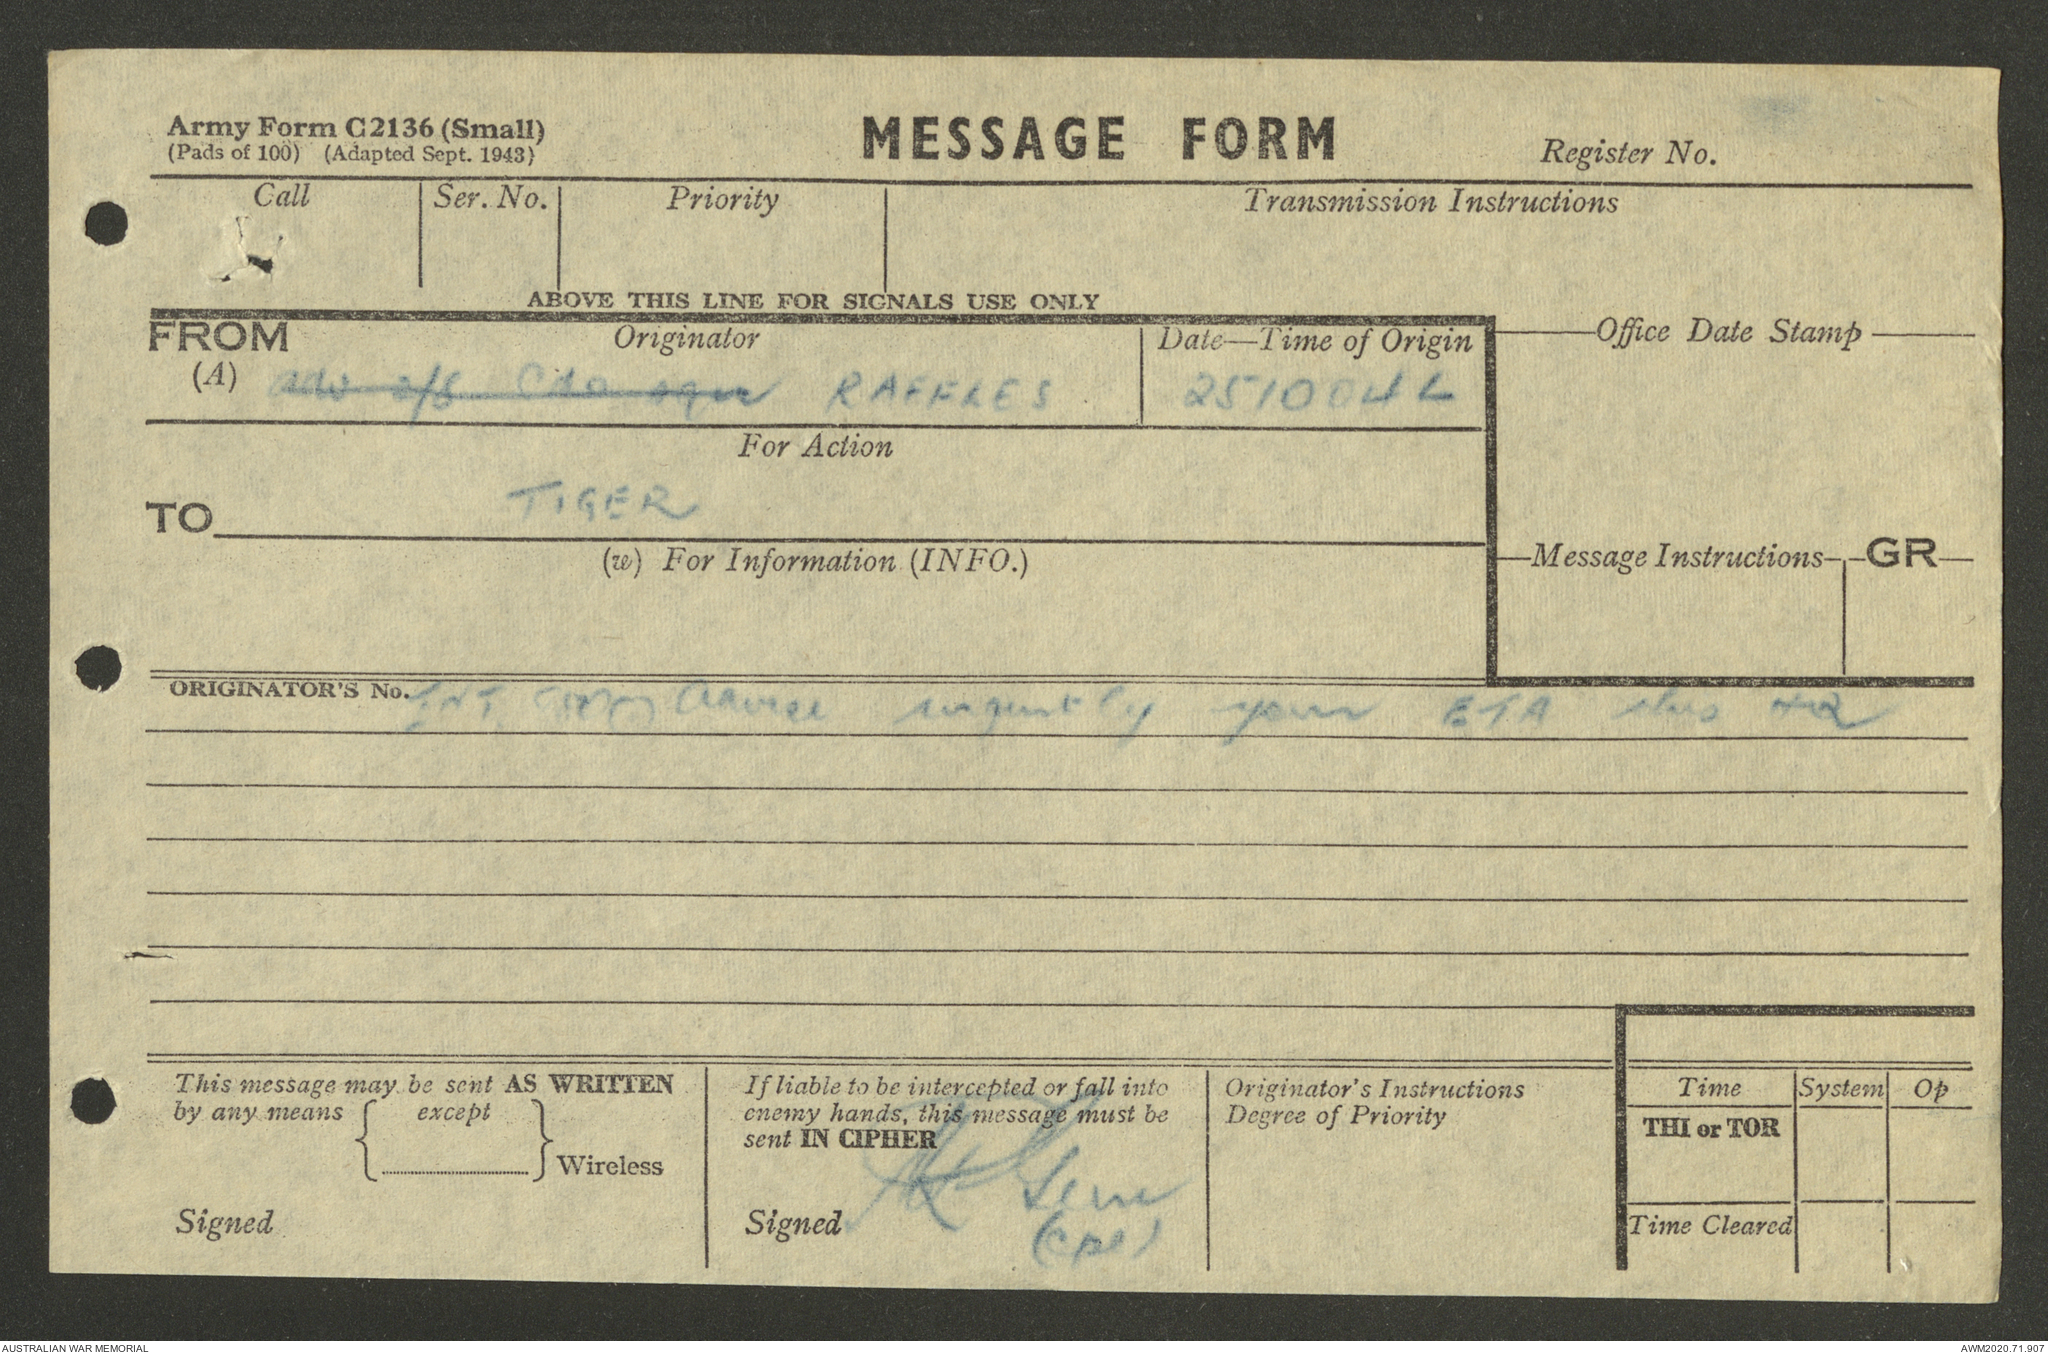 Army Form C2136 (Small)
(Pads of 100) (Adapted Sept. 1943)
MESSAGE FORM
Register No.
Call
Ser. No.
Priority
Transmission Instructions
ABOVE THIS LINE FOR SIGNALS USE ONLY
FROM
(A)
Originator
Date—Time of Origin
Office Date Stamp
RAFFLES
251004L
For Action
TO
TIGER
(w) For Information (INFO.)
Message Instructions
GR
ORIGINATOR'S No.
INT advise urgently your ETA this HQ
This message may be sent AS WRITTEN
by any means { except
} Wireless
Signed
If liable to be intercepted or fall into
enemy hands, this message must be
sent IN CIPHER
Signed
(Cpl)
Originator's Instructions
Degree of Priority
Time
System
Op
THI or TOR
Time Cleared
AUSTRALIAN WAR MEMORIAL
AWM2020.71.907